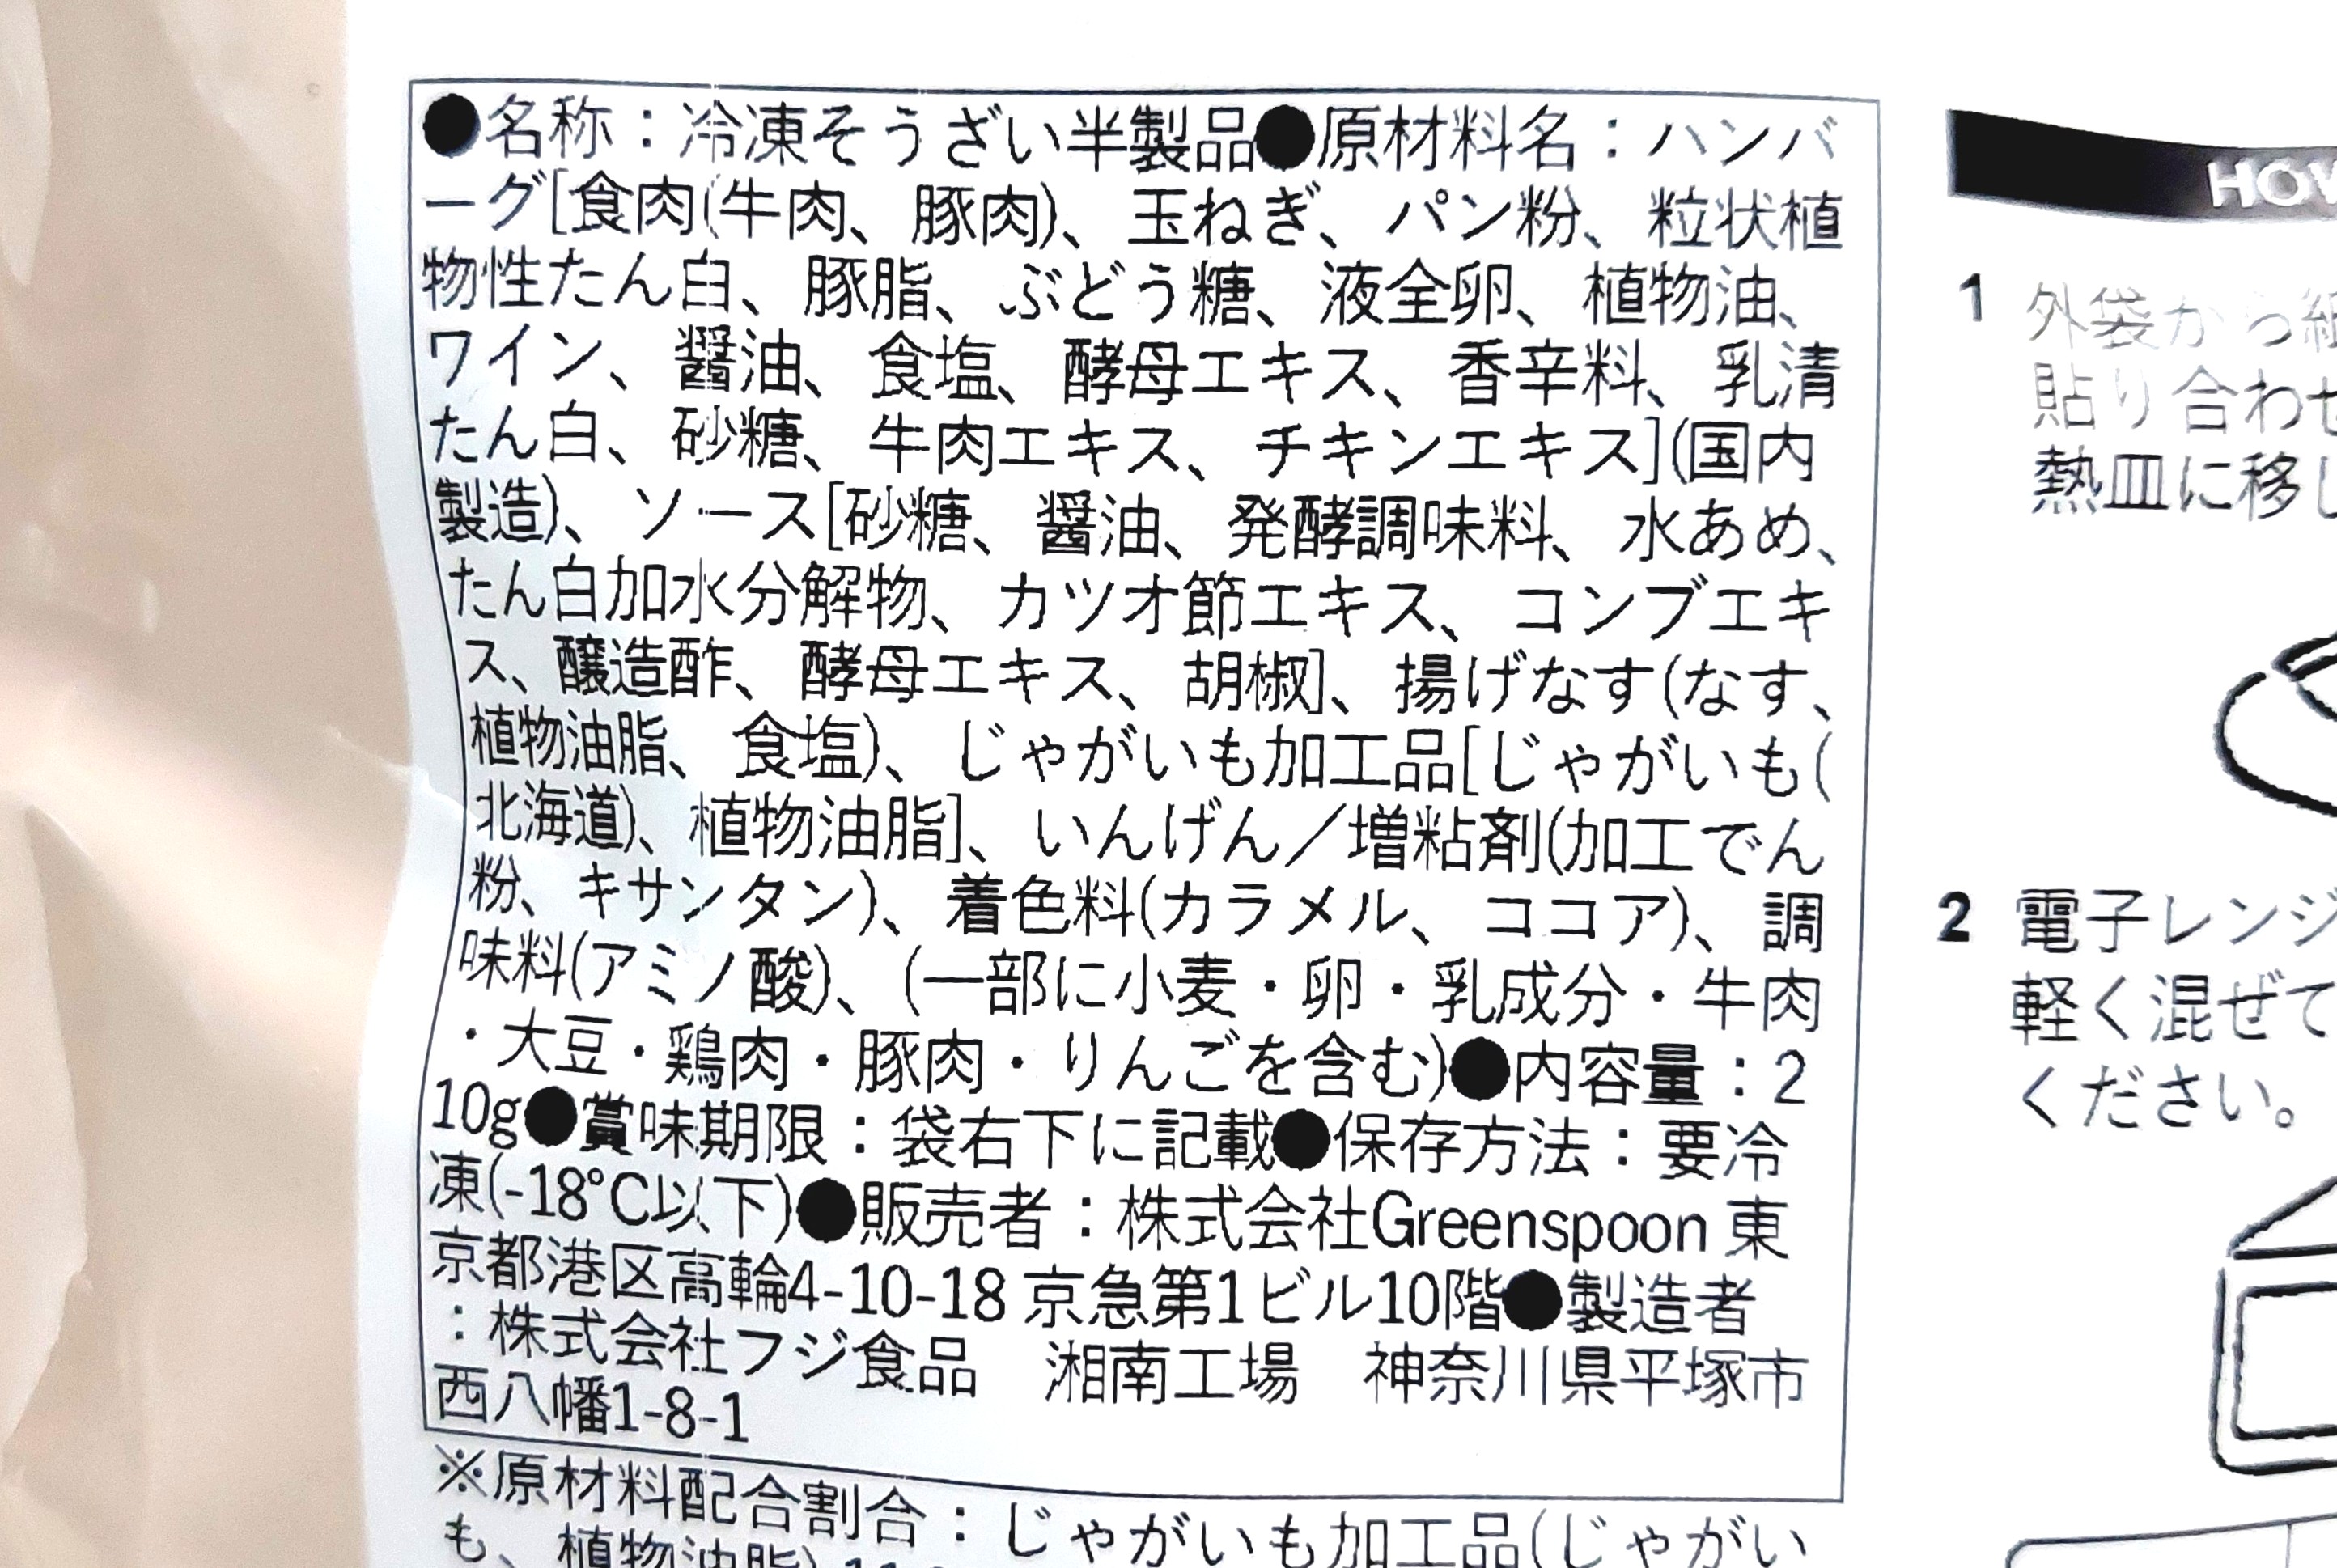 ●名称：冷凍そうざい半製品●原材料名：ハンバ
ーグ[食肉(牛肉、豚肉)、玉ねぎ、パン粉、粒状植
物性たん白、豚脂、ぶどう糖、液全卵、植物油、
ワイン、醤油、食塩、酵母エキス、香辛料、乳清
たん白、砂糖、牛肉エキス、チキンエキス](国内
製造)、ソース[砂糖、醤油、発酵調味料、水あめ、
たん白加水分解物、カツオ節エキス、コンブエキ
ス、醸造酢、酵母エキス、胡椒]、揚げなす(なす、
植物油脂、食塩)、じゃがいも加工品[じゃがいも(
北海道)、植物油脂]、いんげん／増粘剤(加工でん
粉、キサンタン)、着色料(カラメル、ココア)、調
味料(アミノ酸)、(一部に小麦・卵・乳成分・牛肉
・大豆・鶏肉・豚肉・りんごを含む)●内容量：2
10g●賞味期限：袋右下に記載●保存方法：要冷
凍(-18℃以下)●販売者：株式会社Greenspoon 東
京都港区高輪4-10-18 京急第1ビル10階●製造者
：株式会社フジ食品　湘南工場　神奈川県平塚市
西八幡1-8-1
※原材料配合割合：じゃがいも加工品(じゃがい
も、植物油脂)
HOW
1 外袋から紙
貼り合わせ
熱皿に移し
2 電子レンジ
軽く混ぜて
ください。